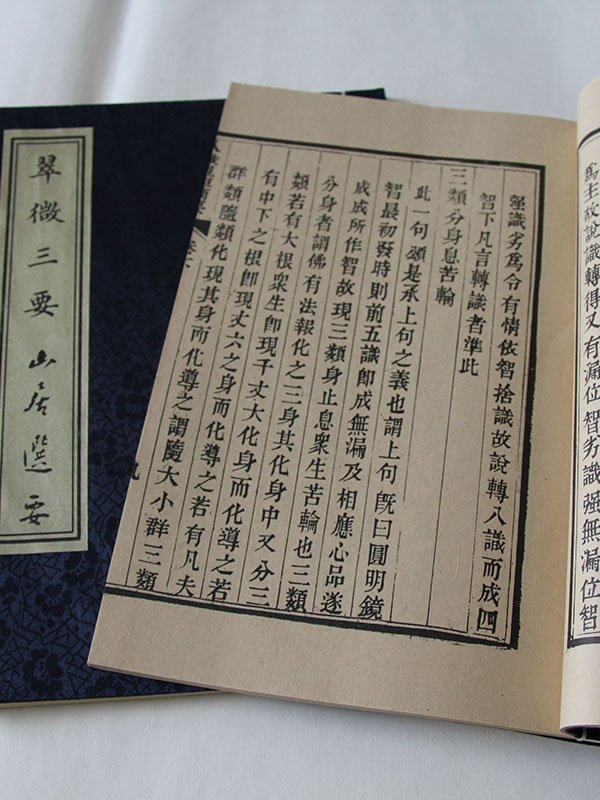 爲主故說識轉得又有漏位智劣識强無漏位智
强識劣爲令有情依智捨識故說轉八識而成四
智下凡言轉識者準此
三類分身息苦輪
此一句頌是承上句之義也謂上句旣曰圓明鏡
智最初發時則前五識卽成無漏及相應心品遂
成成所作智故現三類身止息衆生苦輪也三類
分身者謂佛有法報化之三身其化身中又分三
類若有大根衆生卽現千丈大化身而化導之若
有中下之根卽現丈六之身而化導之若有凡夫
群類隨類化現其身而化導之謂隨大小群三類
九
翠微三要 山居選要